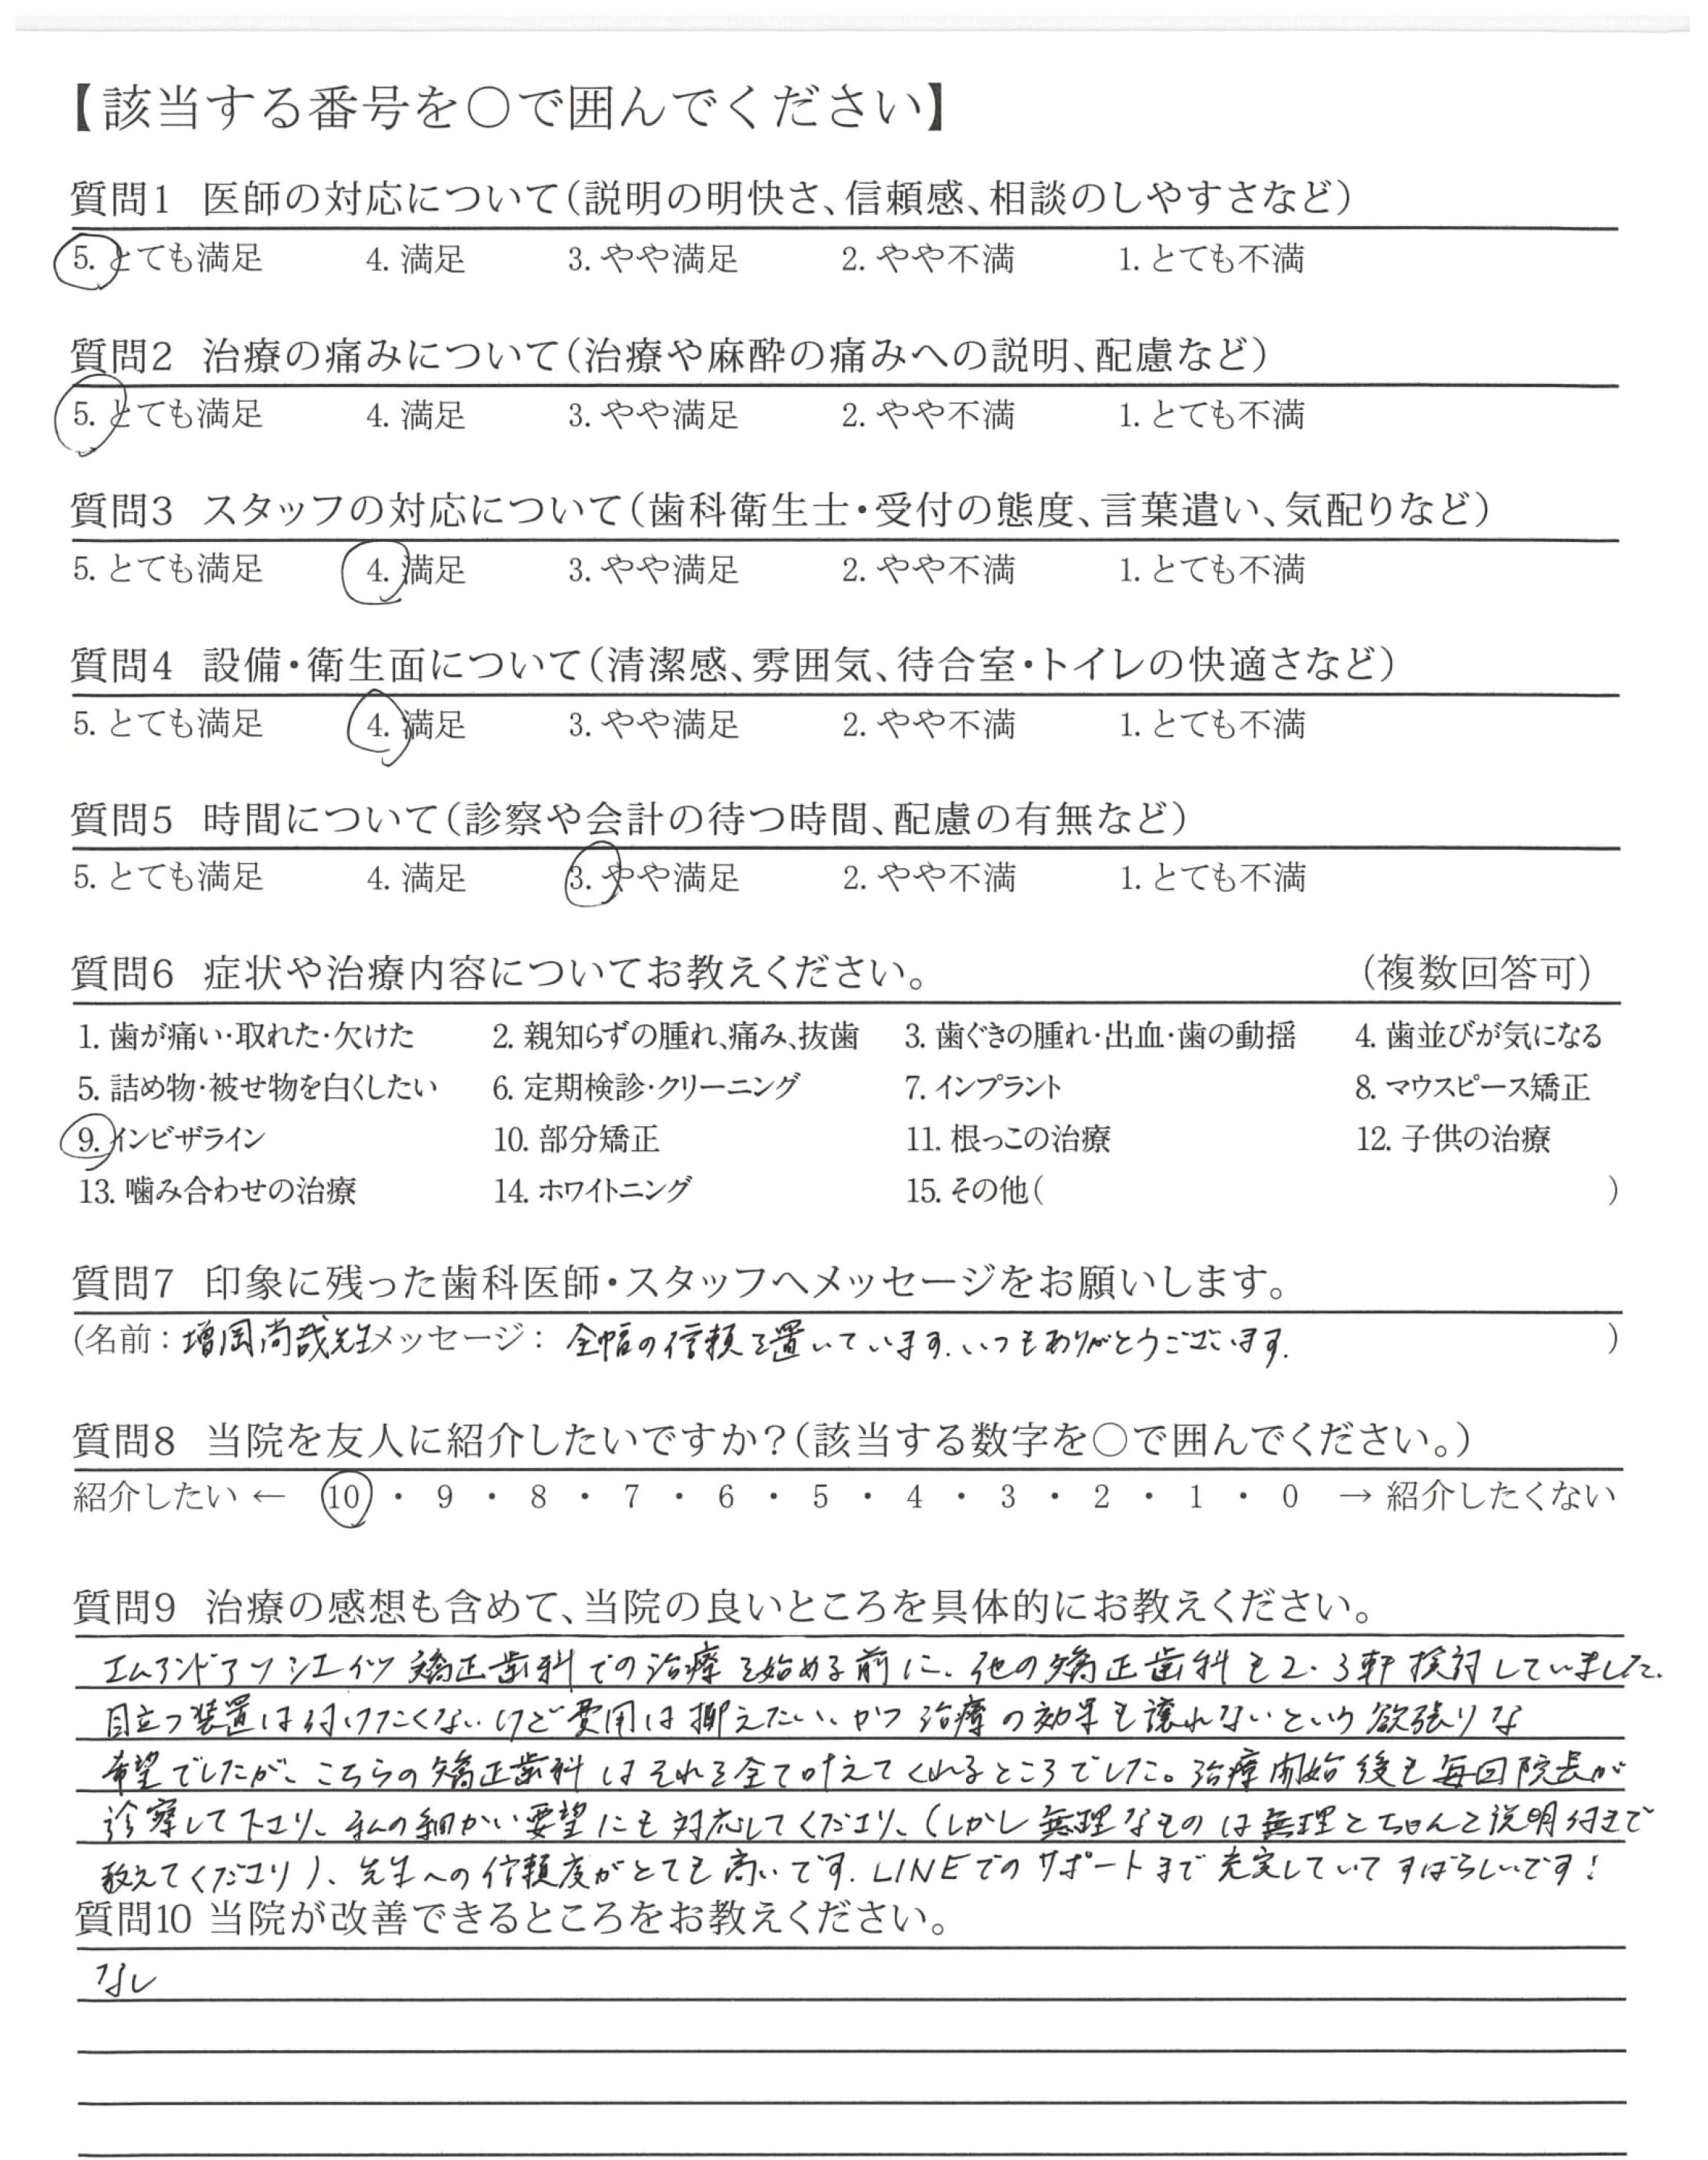 【該当する番号を○で囲んでください】
質問1 医師の対応について(説明の明快さ、信頼感、相談のしやすさなど)
5. とても満足 4. 満足 3. やや満足 2. やや不満 1. とても不満
質問2 治療の痛みについて(治療や麻酔の痛みへの説明、配慮など)
5. とても満足 4. 満足 3. やや満足 2. やや不満 1. とても不満
質問3 スタッフの対応について(歯科衛生士・受付の態度、言葉遣い、気配りなど)
5. とても満足 4. 満足 3. やや満足 2. やや不満 1. とても不満
質問4 設備・衛生面について(清潔感、雰囲気、待合室・トイレの快適さなど)
5. とても満足 4. 満足 3. やや満足 2. やや不満 1. とても不満
質問5 時間について(診察や会計の待つ時間、配慮の有無など)
5. とても満足 4. 満足 3. やや満足 2. やや不満 1. とても不満
質問6 症状や治療内容についてお教えください。 (複数回答可)
1. 歯が痛い・取れた・欠けた 2. 親知らずの腫れ、痛み、抜歯 3. 歯ぐきの腫れ・出血・歯の動揺 4. 歯並びが気になる
5. 詰め物・被せ物を白くしたい 6. 定期検診・クリーニング 7. インプラント 8. マウスピース矯正
9. インビザライン 10. 部分矯正 11. 根っこの治療 12. 子供の治療
13. 噛み合わせの治療 14. ホワイトニング 15. その他( )
質問7 印象に残った歯科医師・スタッフへメッセージをお願いします。
(名前：増岡尚哉先生メッセージ： 全幅の信頼を置いています。いつもありがとうございます。 )
質問8 当院を友人に紹介したいですか？(該当する数字を○で囲んでください。)
紹介したい ← 10 ・ 9 ・ 8 ・ 7 ・ 6 ・ 5 ・ 4 ・ 3 ・ 2 ・ 1 ・ 0 → 紹介したくない
質問9 治療の感想も含めて、当院の良いところを具体的にお教えください。
エムアンドアソシエイツ矯正歯科での治療を始める前に、他の矯正歯科も2、3軒検討していました。
目立つ装置は付けたくない、けど費用は抑えたい、かつ治療の効果も譲れないという欲張りな
希望でしたが、こちらの矯正歯科はそれを全て叶えてくれるところでした。治療開始後も毎回院長が
診察して下さり、私の細かい要望にも対応してくださり、(しかし無理なものは無理とちゃんと説明付きで
教えてくださり)、先生への信頼度がとても高いです。LINEでのサポートまで充実していてすばらしいです！
質問10 当院が改善できるところをお教えください。
なし